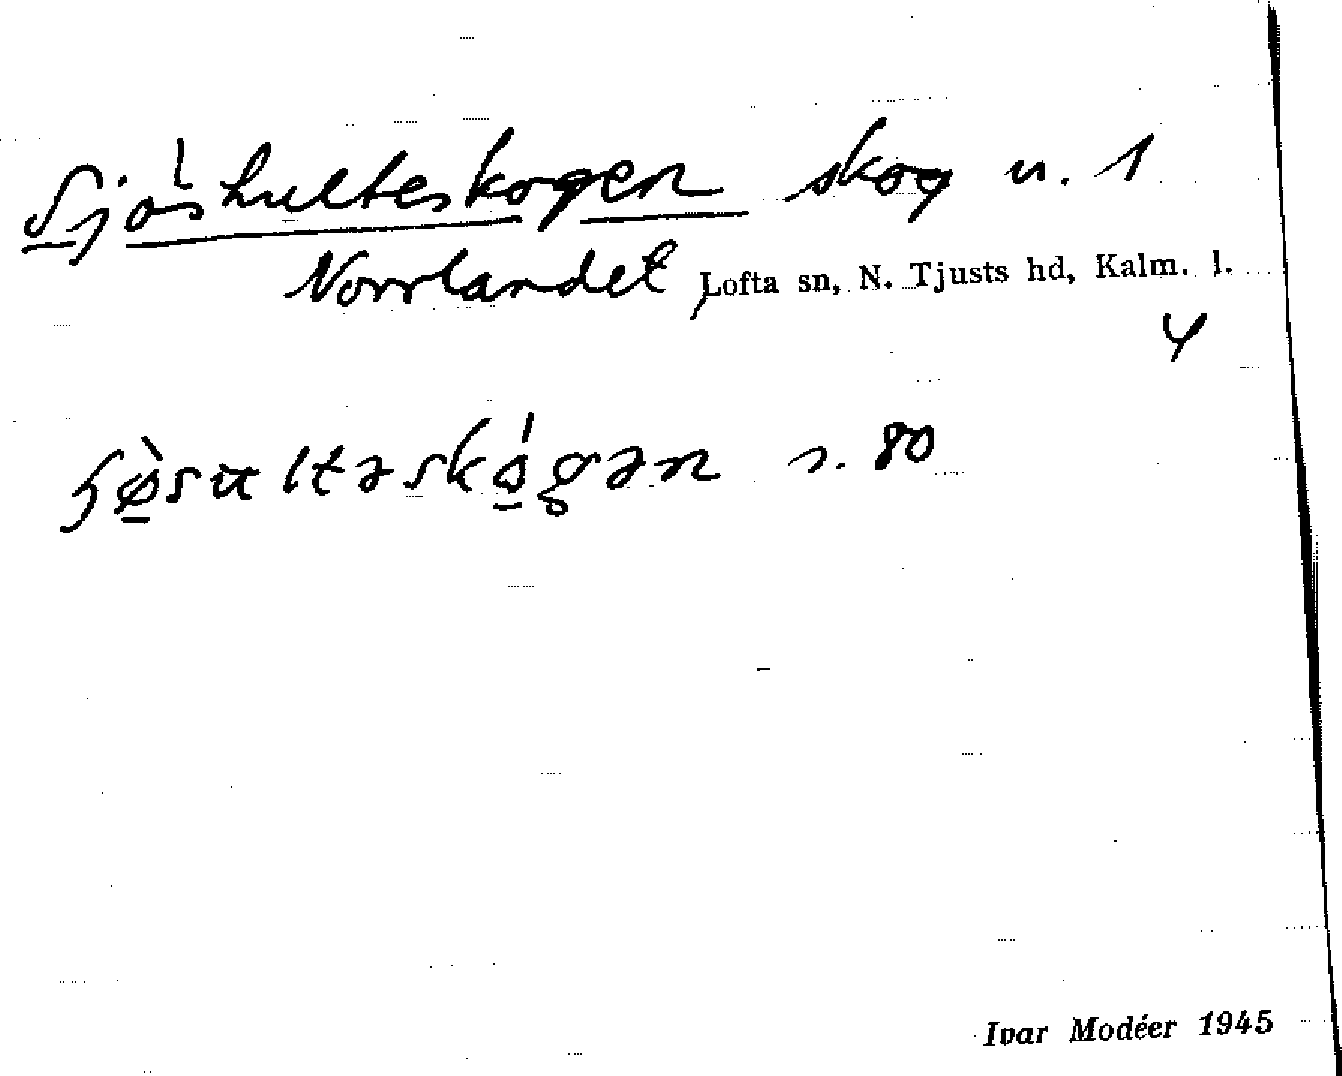 Sjöshulteskogen skog n. 1
Norrlandet, Lofta sn, N. Tjusts hd, Kalm. l.
4
s. 80
Ivar Modéer 1945